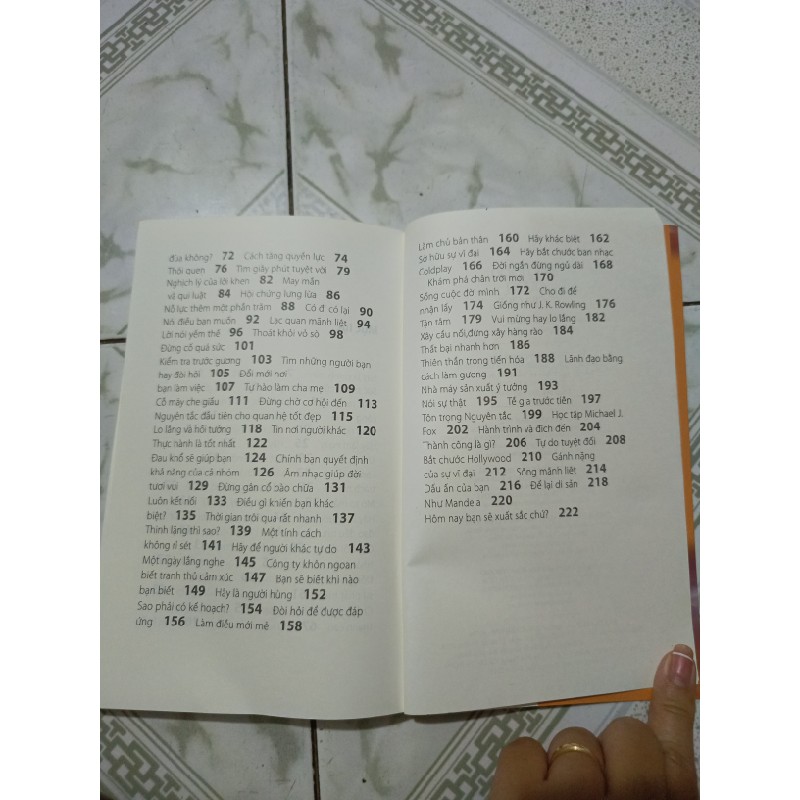 đùa không? 72 Cách tăng quyền lực 74
Thói quen 76 Tìm giây phút tuyệt vời 79
Nghịch lý của lời khen 82 May mắn
và qui luật 84 Hội chứng lưng lửa 86
Nỗ lực thêm một phần trăm 88 Có đi có lại 90
Nói điều bạn muốn 92 Lạc quan mãnh liệt 94
Lời nói yếm thế 96 Thoát khỏi vỏ sò 98
Đừng cố quá sức 101
Kiểm tra trước gương 103 Tìm những người bạn
hay đòi hỏi 105 Đổi mới nơi
bạn làm việc 107 Tự hào làm cha mẹ 109
Cỗ máy che giấu 111 Đừng chờ cơ hội đến 113
Nguyên tắc đầu tiên cho quan hệ tốt đẹp 115
Lo lắng và hồi tưởng 118 Tin nơi người khác 120
Thực hành là tốt nhất 122
Đau khổ sẽ giúp bạn 124 Chính bạn quyết định
khả năng của cả nhóm 126 Âm nhạc giúp đời
tươi vui 129 Đừng gắn cổ bào chữa 131
Luôn kết nối 133 Điều gì khiến bạn khác
biệt? 135 Thời gian trôi qua rất nhanh 137
Thinh lặng thì sao? 139 Một tính cách
không rỉ sét 141 Hãy để người khác tự do 143
Một ngày lắng nghe 145 Công ty khôn ngoan
biết tranh thủ cảm xúc 147 Bạn sẽ biết khi nào
bạn biết 149 Hãy là người hùng 152
Sao phải có kế hoạch? 154 Đòi hỏi để được đáp
ứng 156 Làm điều mới mẻ 158
Làm chủ bản thân 160 Hãy khác biệt 162
Sở hữu sự vĩ đại 164 Hãy bắt chước ban nhạc
Coldplay 166 Đời ngắn đừng ngủ dài 168
Khám phá chân trời mới 170
Sống cuộc đời mình 172 Cho đi để
nhận lấy 174 Giống như J. K. Rowling 176
Tận tâm 179 Vui mừng hay lo lắng 182
Xây cầu nối,đừng xây hàng rào 184
Thất bại nhanh hơn 186
Thiên thần trong tiến hóa 188 Lãnh đạo bằng
cách làm gương 191
Nhà máy sản xuất ý tưởng 193
Nói sự thật 195 Té ga trước tiên 197
Tôn trọng Nguyên tắc 199 Học tập Michael J.
Fox 202 Hành trình và đích đến 204
Thành công là gì? 206 Tự do tuyệt đối 208
Bắt chước Hollywood 210 Gánh nặng
của sự vĩ đại 212 Sống mãnh liệt 214
Dấu ấn của bạn 216 Để lại di sản 218
Như Mandea 220
Hôm nay bạn sẽ xuất sắc chứ? 222